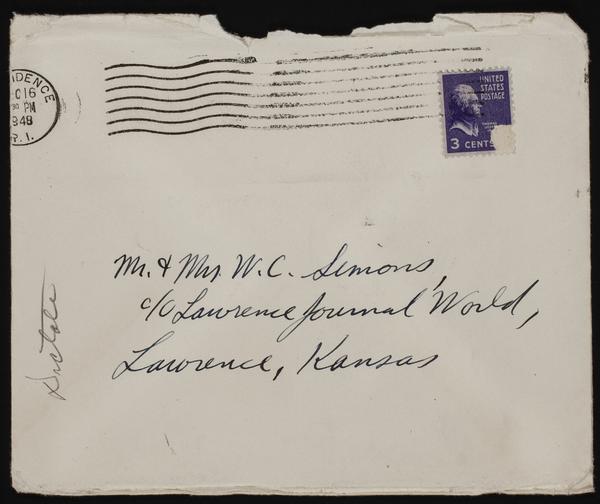 IDENCE
C 16
30 PM
948
R. I.
UNITED
STATES
POSTAGE
3 CENTS
Mr. & Mrs. W. C. Simons,
c/o Lawrence Journal World,
Lawrence, Kansas
Dictate